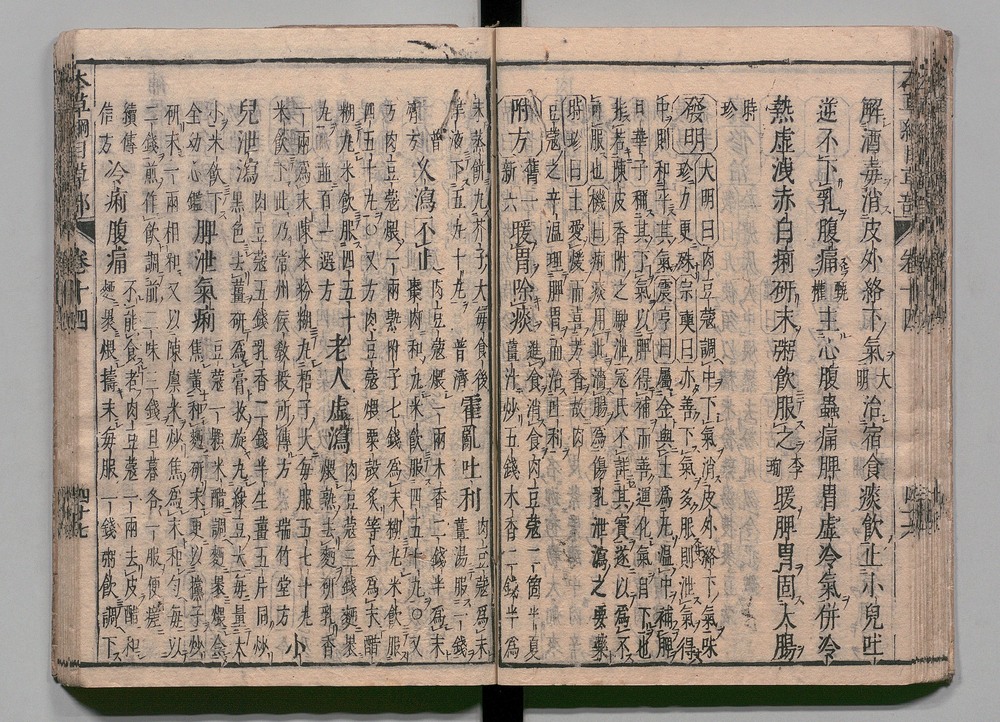 解酒毒消皮外絡下氣大明治宿食痰飲止小兒吐
逆不下乳腹痛甄權主心腹蟲痛脾胃虛冷氣併冷
熱虛洩赤白痢研末粥飲服之李珣暖脾胃固大腸
時珍
發明大明曰肉豆蔻調中下氣消皮外絡下氣味
珍力更殊宗奭曰亦善下氣多服則泄氣得
中則和平其氣震亨曰屬金與土爲丸溫中補脾
日華子稱其下氣以脾得補而善運化氣自下也
非若陳皮香附之駃泄寇氏不詳其實遂以爲不
可服也機曰痢疾用此澁腸爲傷乳泄瀉之要藥
時珍曰土愛暖而喜芳香故肉
豆蔻之辛溫理脾胃而治吐利
附方舊一新六暖胃除痰進食消食肉豆蔻二箇半夏
薑汁炒五錢木香二錢半爲
末蒸餅丸芥子大每食後
津液下五丸十丸普濟霍亂吐利肉豆蔻爲末
薑湯服一錢
普濟方久瀉不止肉豆蔻煨一兩木香二錢半爲末
棗肉和丸米飲服四五十丸○又
方肉豆蔻煨一兩熟附子七錢爲末糊丸米飲服
四五十丸○又方肉豆蔻煨粟殼炙等分爲末醋
糊丸米飲服四五十丸百一選方老人虛瀉肉豆蔻三錢麵裹
煨熟去麵研乳香
一兩爲末陳米粉糊丸梧子大每服五七十丸
米飲下此乃常州侯敎授所傳方瑞竹堂方小
兒泄瀉肉豆蔻五錢乳香二錢半生薑五片同炒
黑色去薑研爲膏收旋丸綠豆大每量大
小米飲下全幼心鑑脾泄氣痢豆蔻一顆米醋調麵裹煨令
焦黃和麵研末更以㯽子炒
研末一兩相和又以陳廩米炒焦爲末和勻每以
二錢煎作飲調前二味三錢旦暮各一服便瘥
續傳信方冷痢腹痛不能食者肉豆蔻一兩去皮醋和
麵裹煨擣末每服一錢粥飲調下